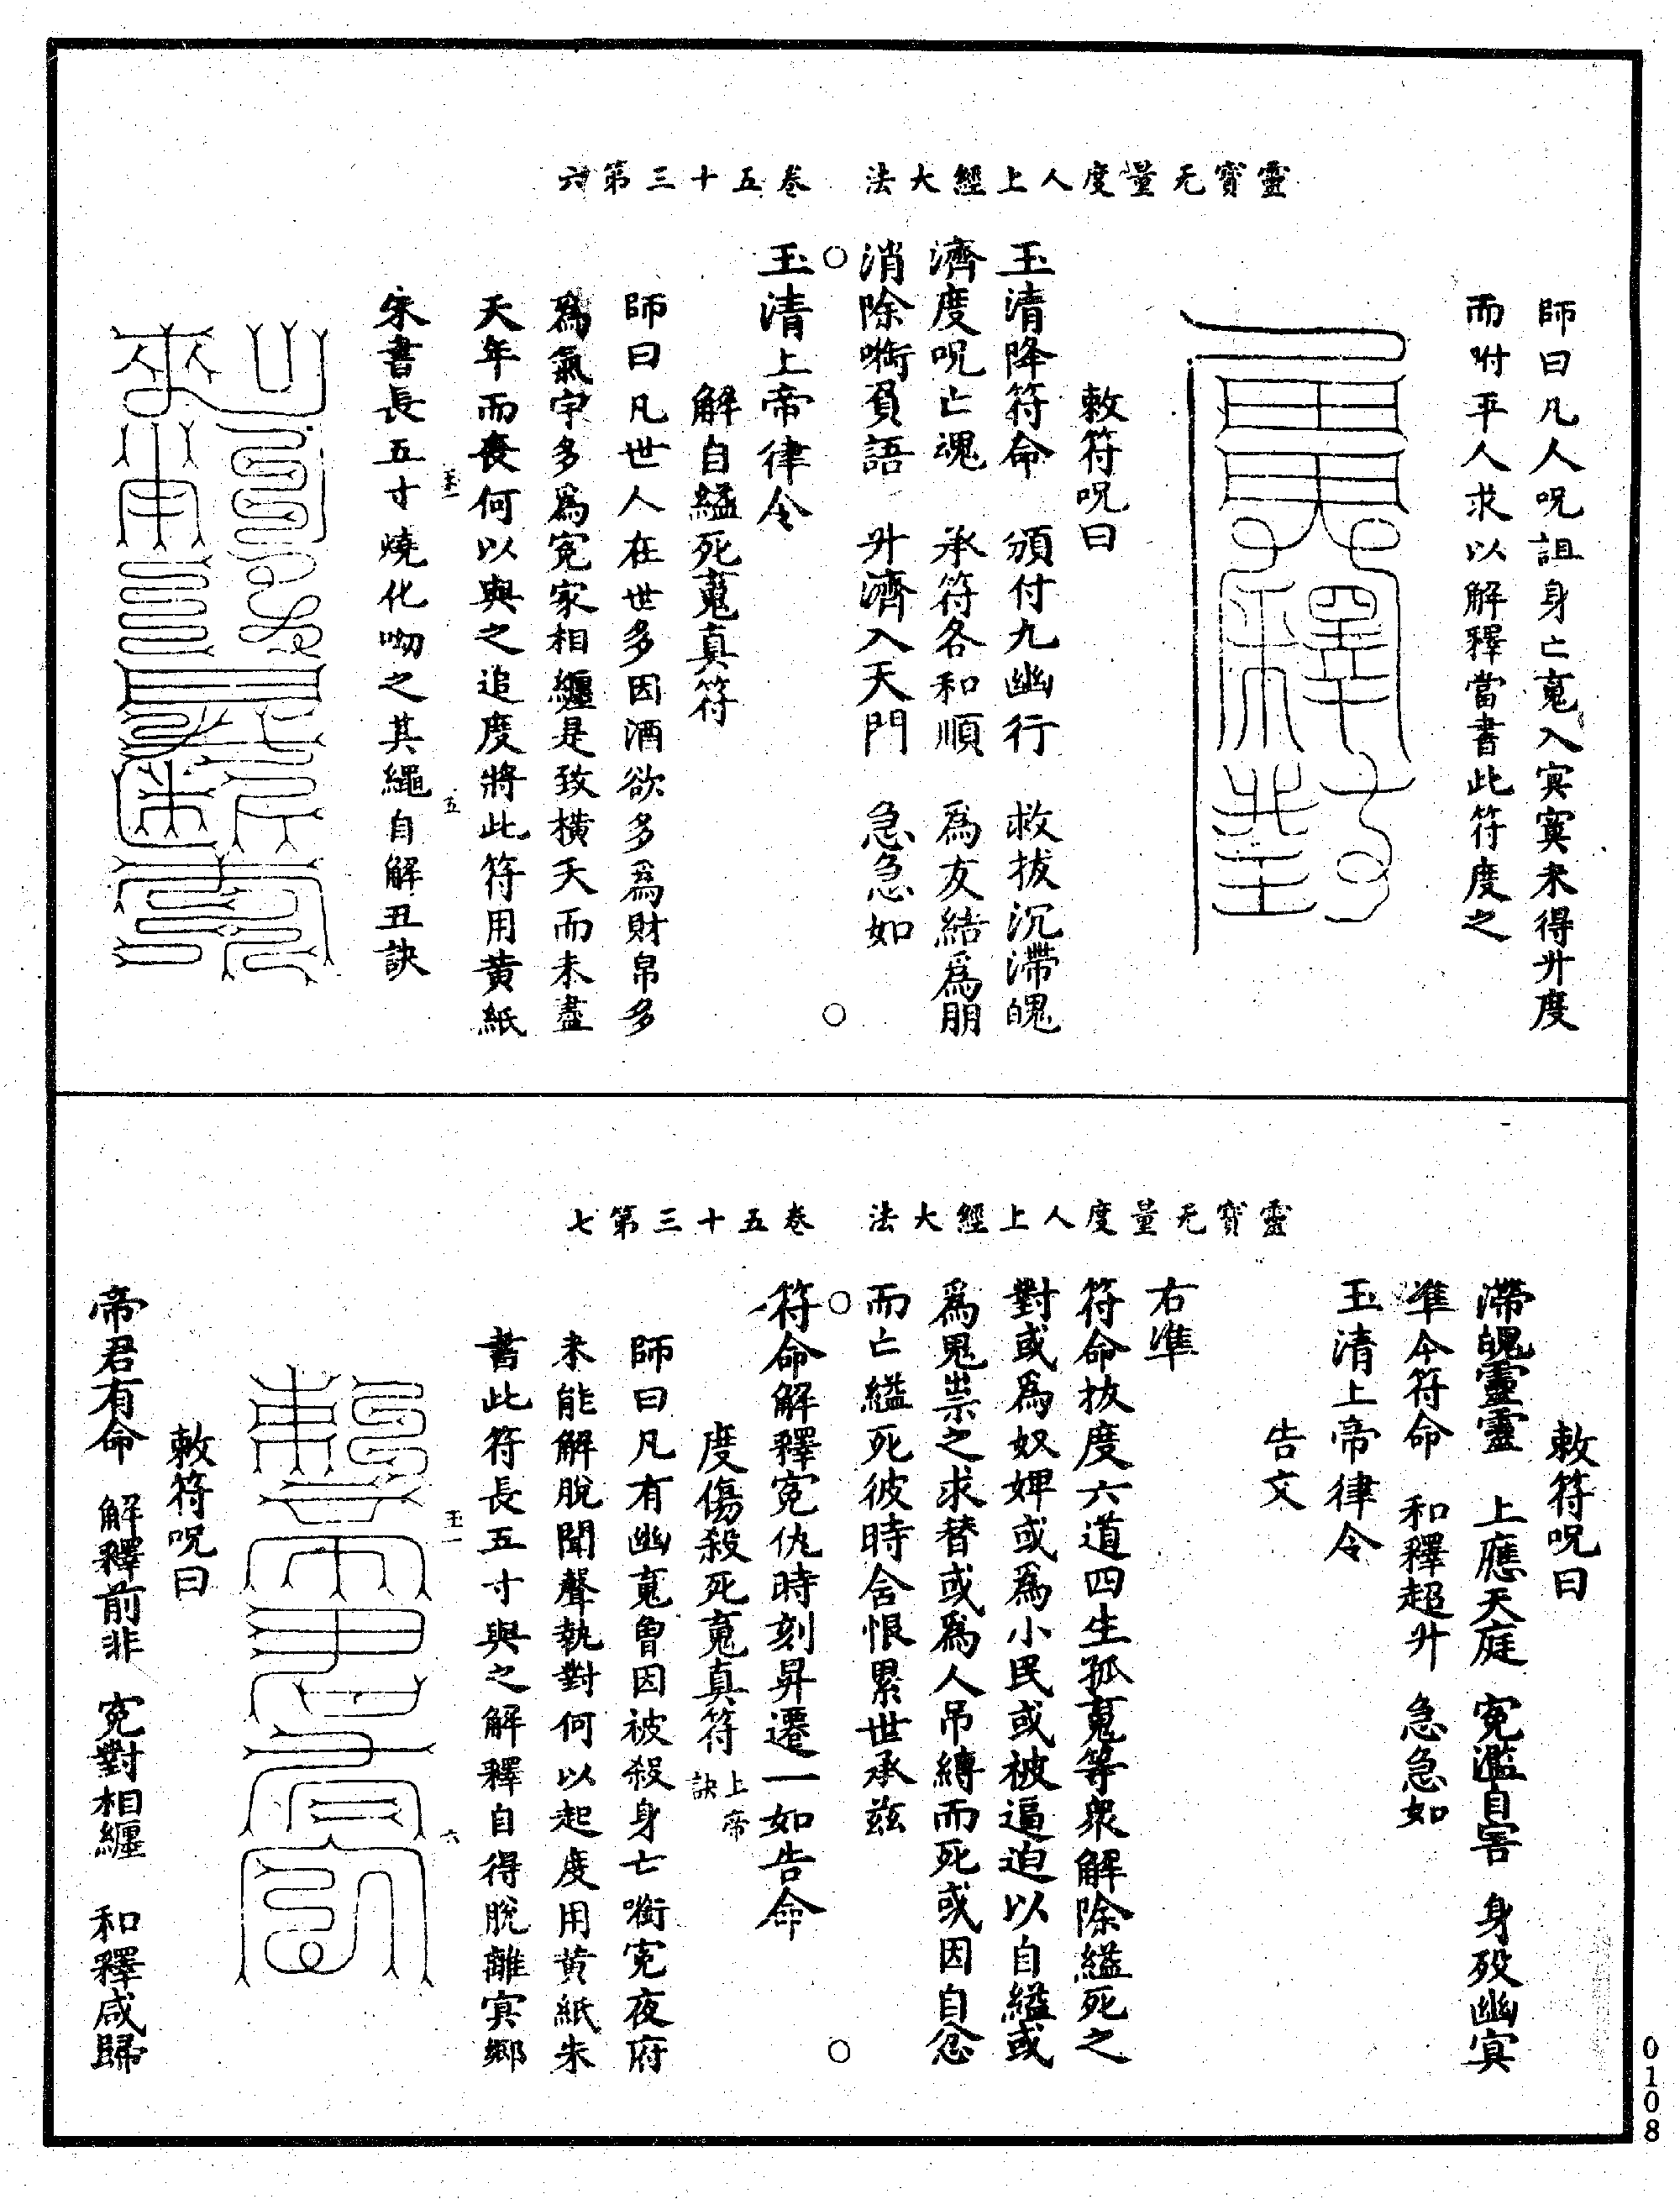 靈寶无量度人上經大法　卷五十三第六
師曰凡人呪詛身亡䰟入㝠㝠未得升度
而咐平人求以解釋當書此符度之
敕符呪曰
玉清降符命　頒付九幽行　救拔沉滯魄
濟度呪亡魂　承符各和順　爲友結爲朋
消除㘅負語　升濟入天門　急急如
玉清上帝律令
解自縊死䰟真符
師曰凡世人在世多因酒欲多爲財帛多
爲氣宇多爲寃家相纏是致橫夭而未盡
天年而喪何以與之追度將此符用黃紙
朱書長五寸燒化呦之其繩自解丑訣
玉一
五
靈寶无量度人上經大法　卷五十三第七
敕符呪曰
滯魄靈靈　上應天庭　寃濫自害　身歿幽㝠
凖今符命　和釋超升　急急如
玉清上帝律令
告文
右凖
符命拔度六道四生孤䰟等衆解除縊死之
對或爲奴婢或爲小民或被逼迫以自縊或
爲鬼祟之求替或爲人吊縳而死或因自忿
而亡縊死彼時含恨累世承兹
符命解釋寃仇時刻昇遷一如告命
度傷殺死䰟真符上帝訣
師曰凡有幽䰟曾因被殺身亡㘅寃夜府
未能解脫聞聲執對何以起度用黃紙朱
書此符長五寸與之解釋自得脫離㝠鄉
玉一
六
敕符呪曰
帝君有命　解釋前非　寃對相纏　和釋咸歸
0108